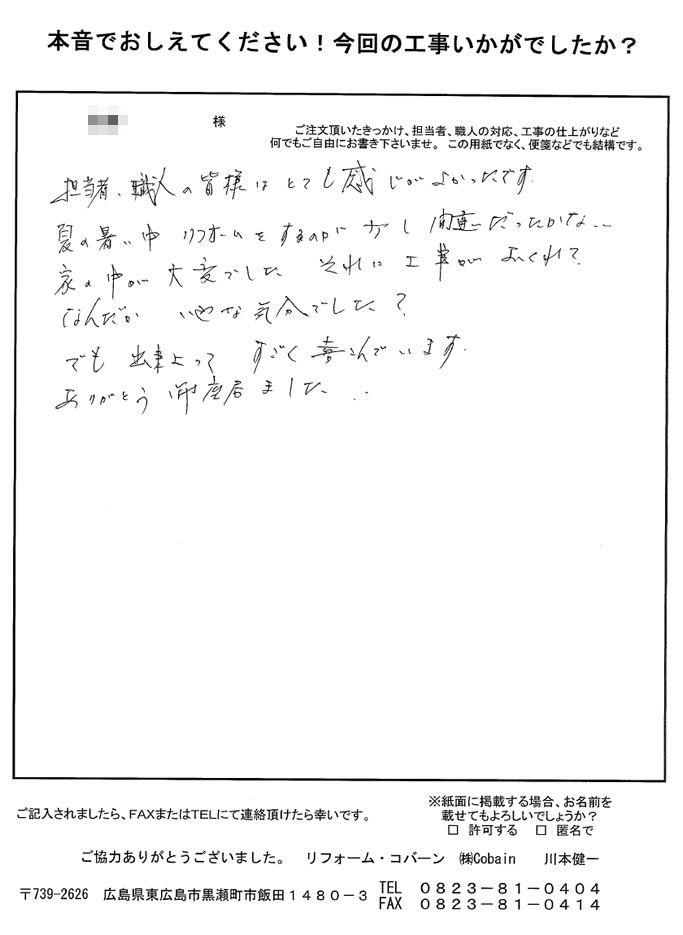 本音でおしえてください！今回の工事いかがでしたか？
様
ご注文頂いたきっかけ、担当者、職人の対応、工事の仕上がりなど
何でもご自由にお書き下さいませ。この用紙でなく、便箋などでも結構です。
担当者、職人の皆様はとても感じがよかったです。
夏の暑い中 リフォームをするのが少し間違だったかな...
家の中が大変でした それに工事がおくれて
なんだか いやな気分でした？
でも 出来上って すごく喜こんでいます.
ありがとう御座居ました...
ご記入されましたら、FAXまたはTELにて連絡頂けたら幸いです。
※紙面に掲載する場合、お名前を
載せてもよろしいでしょうか？
□ 許可する □ 匿名で
ご協力ありがとうございました。 リフォーム・コバーン ㈱Cobain 川本健一
〒739-2626 広島県東広島市黒瀬町市飯田１４８０－３
TEL ０８２３－８１－０４０４
FAX ０８２３－８１－０４１４